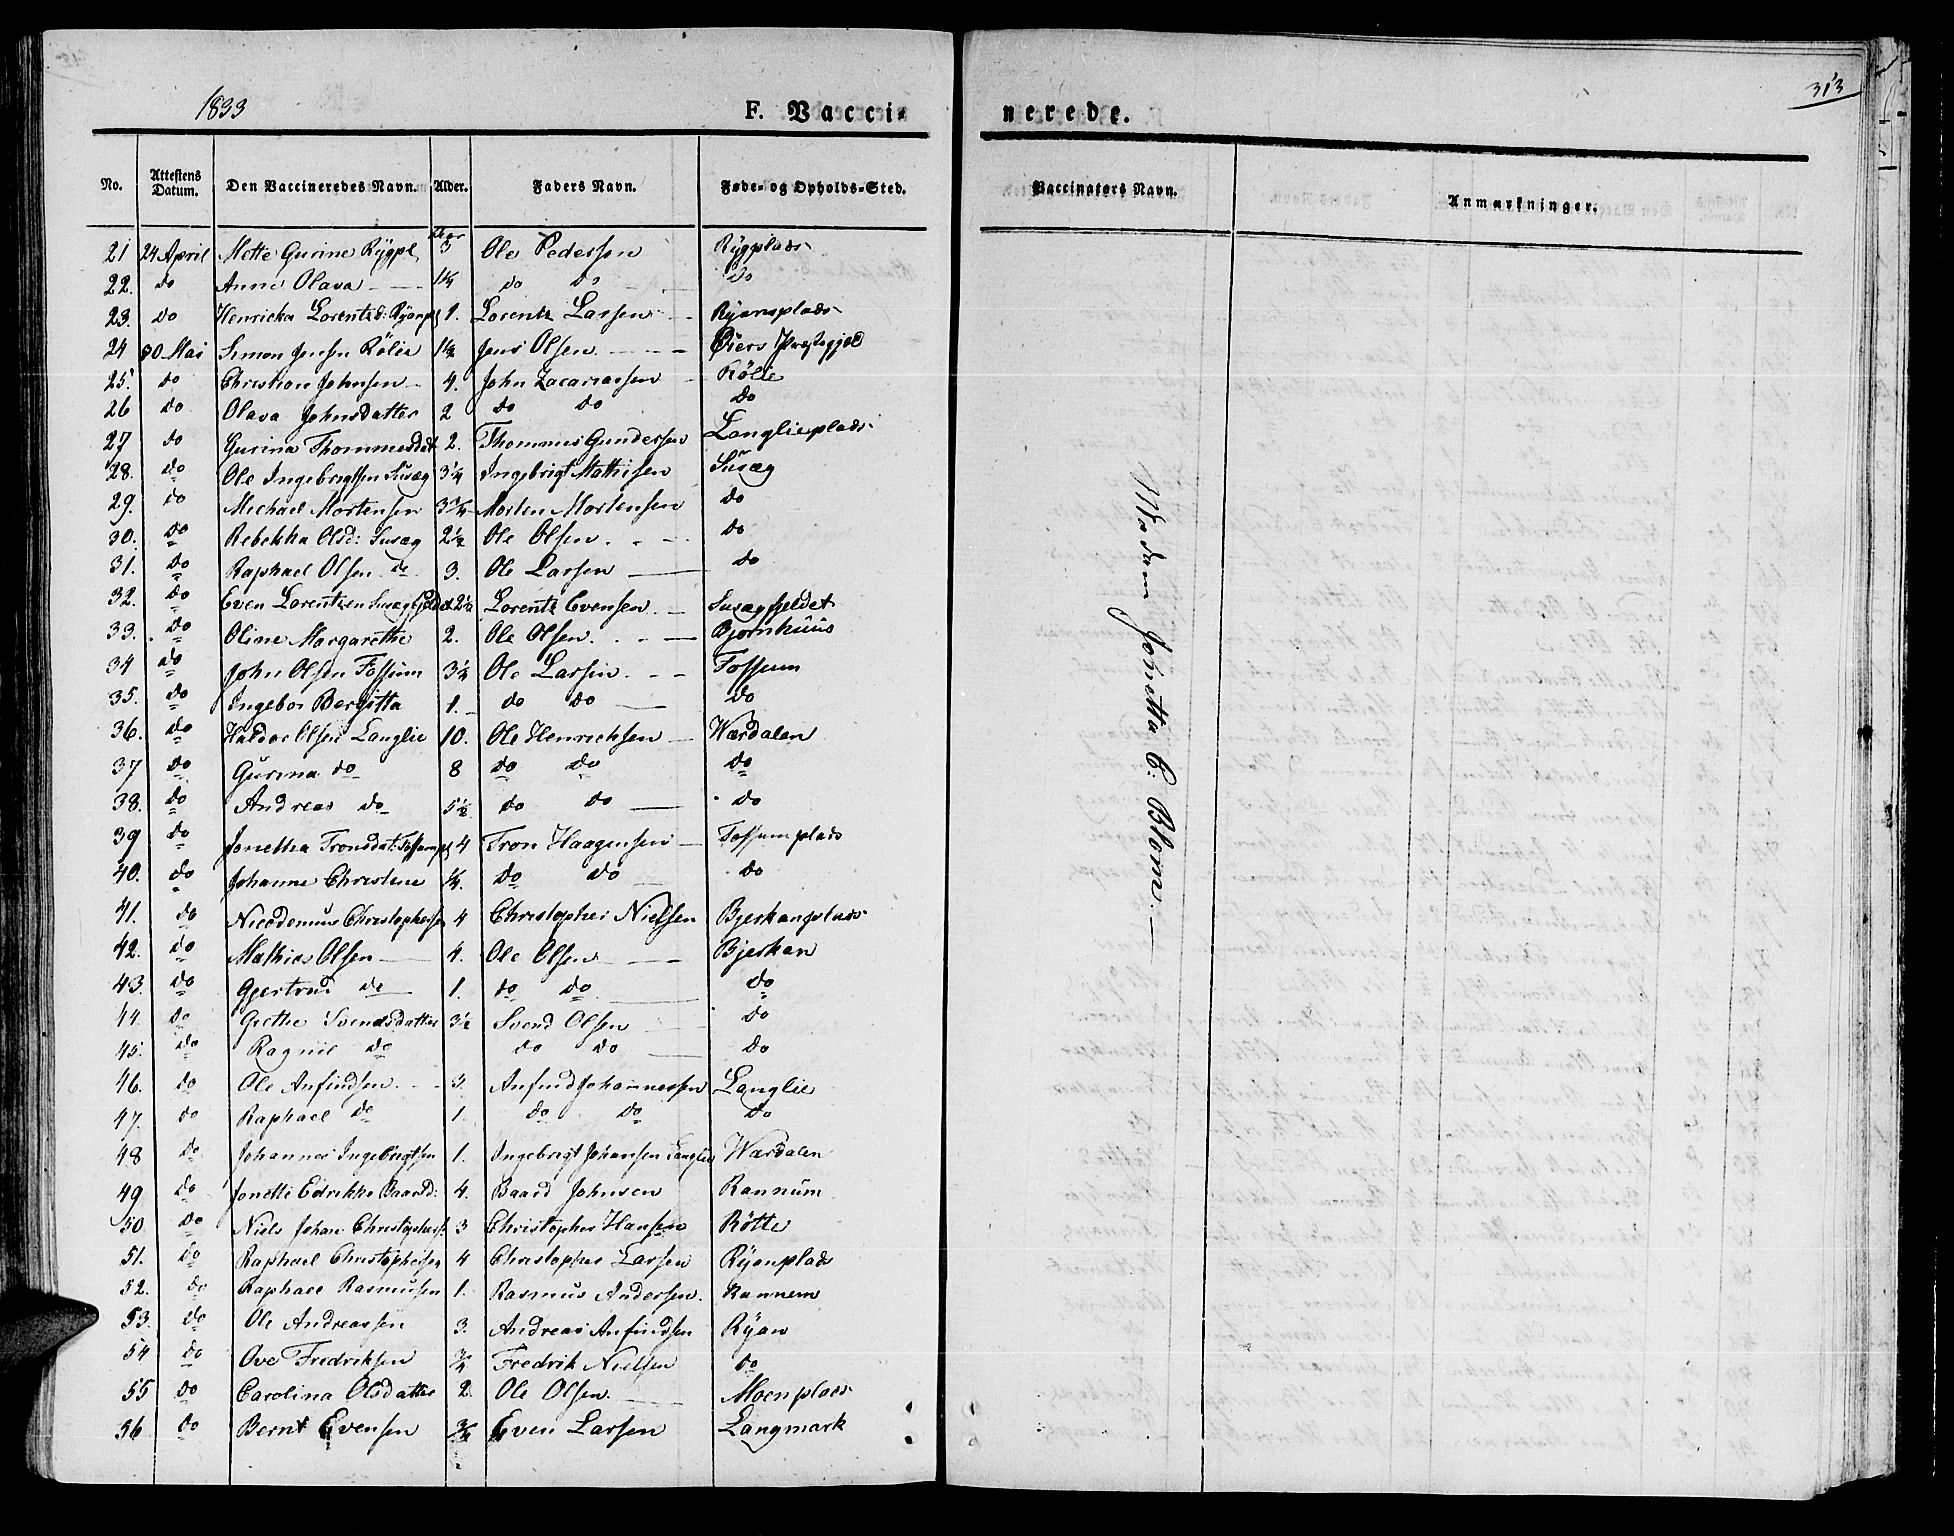 1833 F. Vacci- nerede. 313
No. Attestens Datum. Den Vaccineredes Navn. Alder. Faders Navn. Føde- og Opholds-Sted. Vaccinators Navn. Anmærkninger.
21 24 April Mette Gurine Rygpl. Aar 3 Ole Pedersen Rygplads
22. do Anne Olava 1¼ do do do
23. do Henricka Lorentsd: Ryanpl 1. Lorents Larsen Ryansplads
24 30 Mai Simon Jensen Rølie 1½ Jens Olsen Øiers Præstegjeld
25. do Christian Johnsen 4. John Zacariassen Rølie
26 do Olava Johnsdatter 2 do do do
27 do Gurina Thommesdat 2. Thommes Gundersen Langlieplads
28. do Ole Ingebrigtsen Susæg 3¼ Ingebrigt Mathisen Susæg
29. do Michael Mortensen 3¾ Morten Mortensen do
30. do Rebekka Olsd: Susæg 2½ Ole Olsen do
31. do Raphael Olsen do 3. Ole Larsen do
32. do Even Lorentzen Susægfjeldet 2½ Lorents Evensen Susægfjeldet
33. do Oline Margarethe 2. Ole Olsen Bjørnhuus
34 do John Olsen Fossum 3½ Ole Larsen Fossum
35. do Ingebor Bergitta 1. do do do
36. do Haldor Olsen Langlie 10. Ole Henrichsen Værdalen
37 do Gurina do 8 do do do
38. do Andreas do 5½ do do do
39 do Jonetha Tronsdat: Fossumpl 4 Tron Haagensen Fossumplads
40. do Johanne Christine ¼. do do do
41. do Nicodemus Christophersen 4 Christopher Nielsen Bjerkanplads
42. do Mathias Olsen 4. Ole Olsen Bjerkan
43. do Gjertrud do 1. do do do
44 do Grethe Svendsdatter 3½ Svend Olsen do
45. do Ragnil do do do do
46. do Ole Anfindsen 3. Anfind Johannessen Langlie
47. do Raphael do 1. do do do
48 do Johannes Ingebrigtsen 1. Ingebrigt Johansen Langlie Værdalen
49 do Jonetti Edrikke Baardd: 4. Baard Johnsen Rannum
50 do Niels Johan Christophers. 3 Christopher Hansen Røtte
51. do Raphael Christophersen 4 Christopher Larsen Ryanplads
52. do Raphael Rasmusen 1. Rasmus Andersen Rannem
53. do Ole Andreassen 3. Andreas Anfindsen Ryan
54 do Ove Fredriksen ¾ Fredrik Nielsen do
55 do Carolina Olsdatter 2. Ole Olsen Moenplads
56 do Bernt Evensen ¾ Even Larsen Langmark
Madam Jonetta C: Blom